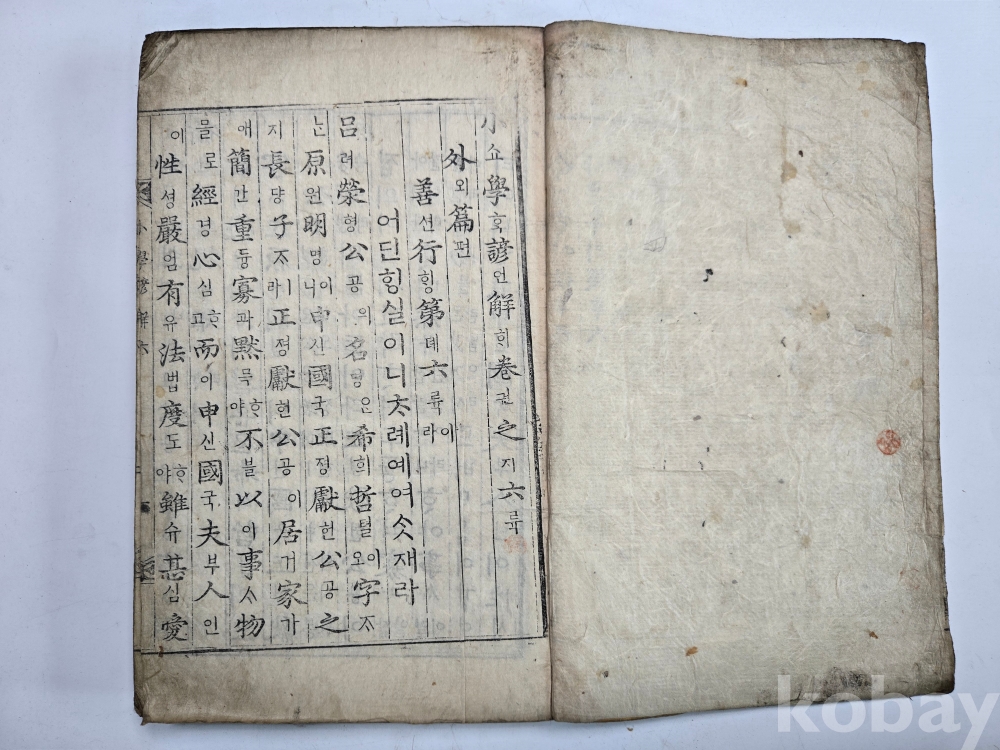 小쇼學ᄒᆞᆨ諺언解ᄒᆡ卷권之지六륙
外외篇편
善선行ᄒᆡᆼ第뎨六륙이라
어딘ᄒᆡᆼ실이니ᄎᆞ례예여ᄉᆞᆺ재라
呂려榮형公공의名명은希희哲텰이오字ᄌᆞ
ᄂᆞᆫ原원明명이니申신國국正졍獻헌公공之
지長댱子ᄌᆞㅣ라正졍獻헌公공이居거家가
애簡간重듕寡과黙믁ᄒᆞ야不블以이事ᄉᆞ物
믈로經경心심ᄒᆞ고而이申신國국夫부人인
이性셩嚴엄有유法법度도ᄒᆞ야雖슈甚심愛
小學諺解六
kobay